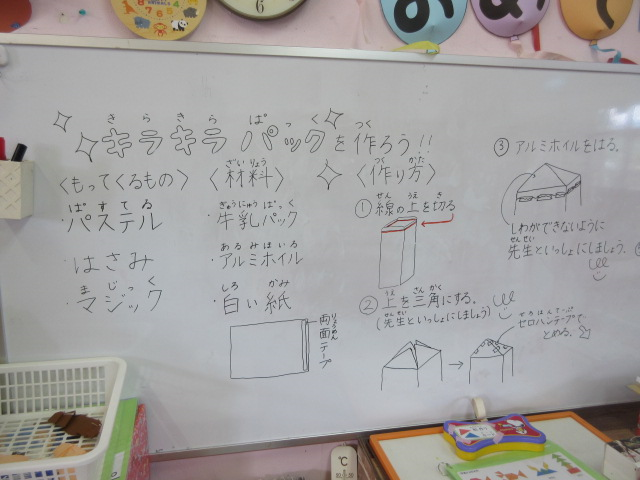 キラキラパックを作ろう!!
きらきらぱっく つく
〈もってくるもの〉
・パステル
ぱすてる
・はさみ
・マジック
まじっく
〈材料〉
ざいりょう
・牛乳パック
ぎょうにゅうぱっく
・アルミホイル
あるみほいる
・白い紙
しろ かみ
両面テープ
りょうめん
〈作り方〉
つく かた
①線の上を切る
せん うえ き
②上を三角にする。
うえ さんかく
(先生といっしょにしましょう)
せんせい
セロハンテープで
せろはんてーぷ
とめる。
③アルミホイルをはる。
しわができないように
先生といっしょにしましょう。
せんせい
℃